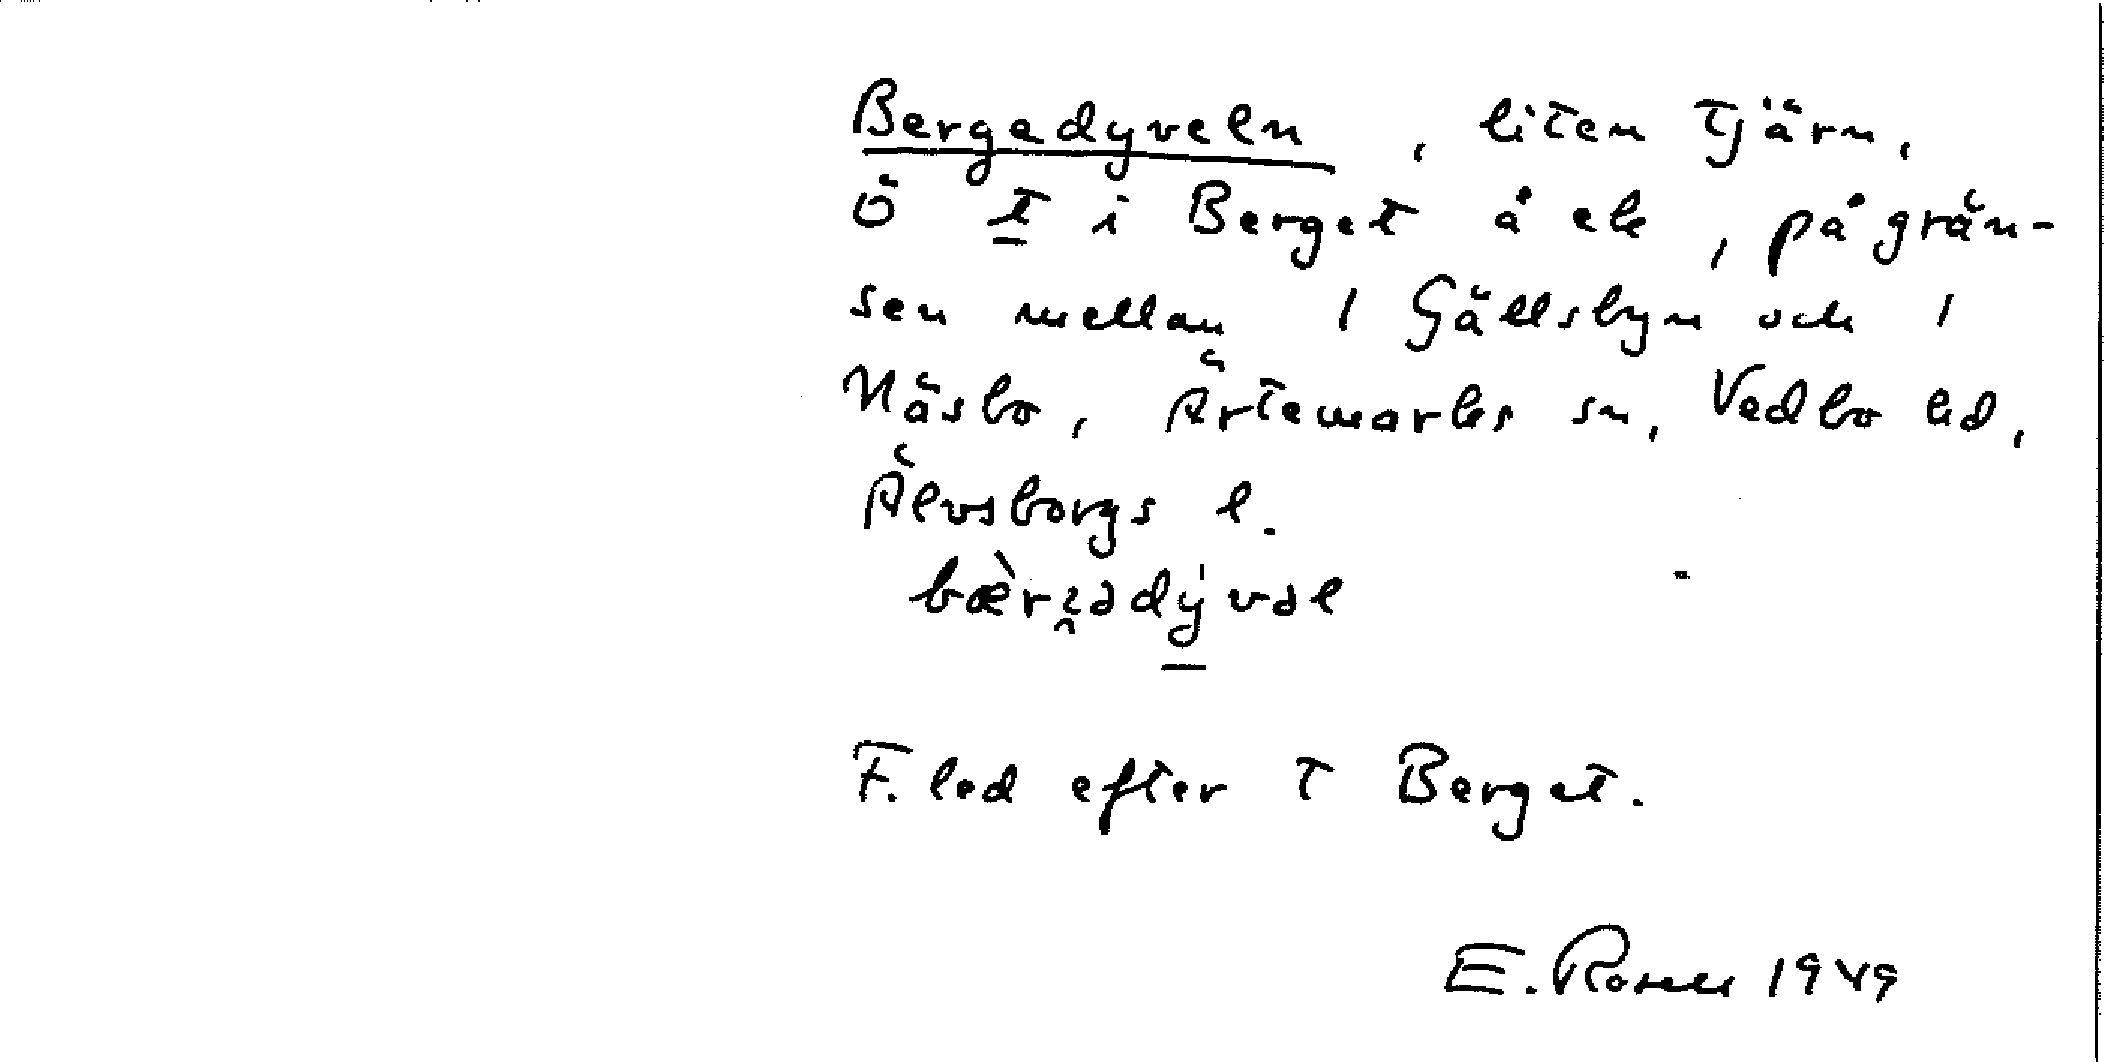 Bergadyveln, liten tjärn,
Ö t i Berget å ek, på grän-
sen mellan 1 Gällsbyn och 1
Näsbo, Ärtemarks sn, Vedbo hd,
Älvsborgs l.
F. led efter t Berget.
E. Rosell 1949